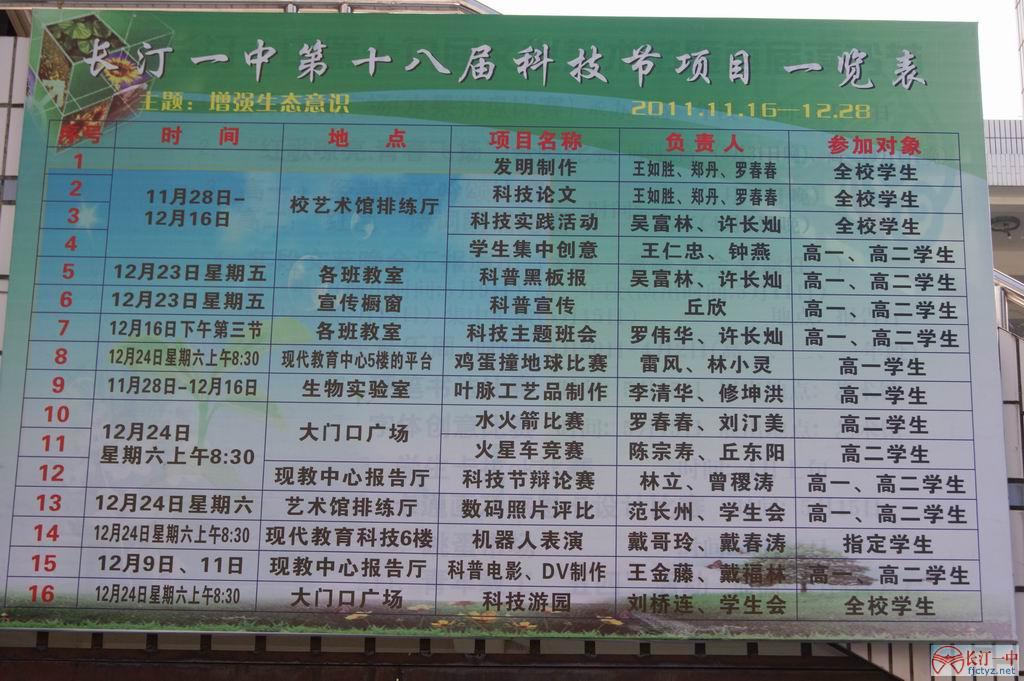 长汀一中第十八届科技节项目一览表
主题：增强生态意识 2011.11.16—12.28
序号 时间 地点 项目名称 负责人 参加对象
1 11月28日-12月16日 校艺术馆排练厅 发明制作 王如胜、郑丹、罗春春 全校学生
2 科技论文 王如胜、郑丹、罗春春 全校学生
3 科技实践活动 吴富林、许长灿 全校学生
4 学生集中创意 王仁忠、钟燕 高一、高二学生
5 12月23日星期五 各班教室 科普黑板报 吴富林、许长灿 高一、高二学生
6 12月23日星期五 宣传橱窗 科普宣传 丘欣 高一、高二学生
7 12月16日下午第三节 各班教室 科技主题班会 罗伟华、许长灿 高一、高二学生
8 12月24日星期六上午8:30 现代教育中心5楼的平台 鸡蛋撞地球比赛 雷风、林小灵 高一学生
9 11月28日-12月16日 生物实验室 叶脉工艺品制作 李清华、修坤洪 高一学生
10 12月24日星期六上午8:30 大门口广场 水火箭比赛 罗春春、刘汀美 高二学生
11 火星车竞赛 陈宗寿、丘东阳 高二学生
12 现教中心报告厅 科技节辩论赛 林立、曾稷涛 高一、高二学生
13 12月24日星期六 艺术馆排练厅 数码照片评比 范长州、学生会 高一、高二学生
14 12月24日星期六上午8:30 现代教育科技6楼 机器人表演 戴哥玲、戴春涛 指定学生
15 12月9日、11日 现教中心报告厅 科普电影、DV制作 王金藤、戴福林 高一、高二学生
16 12月24日星期六上午8:30 大门口广场 科技游园 刘桥连、学生会 全校学生
长汀一中
fjctyz.net